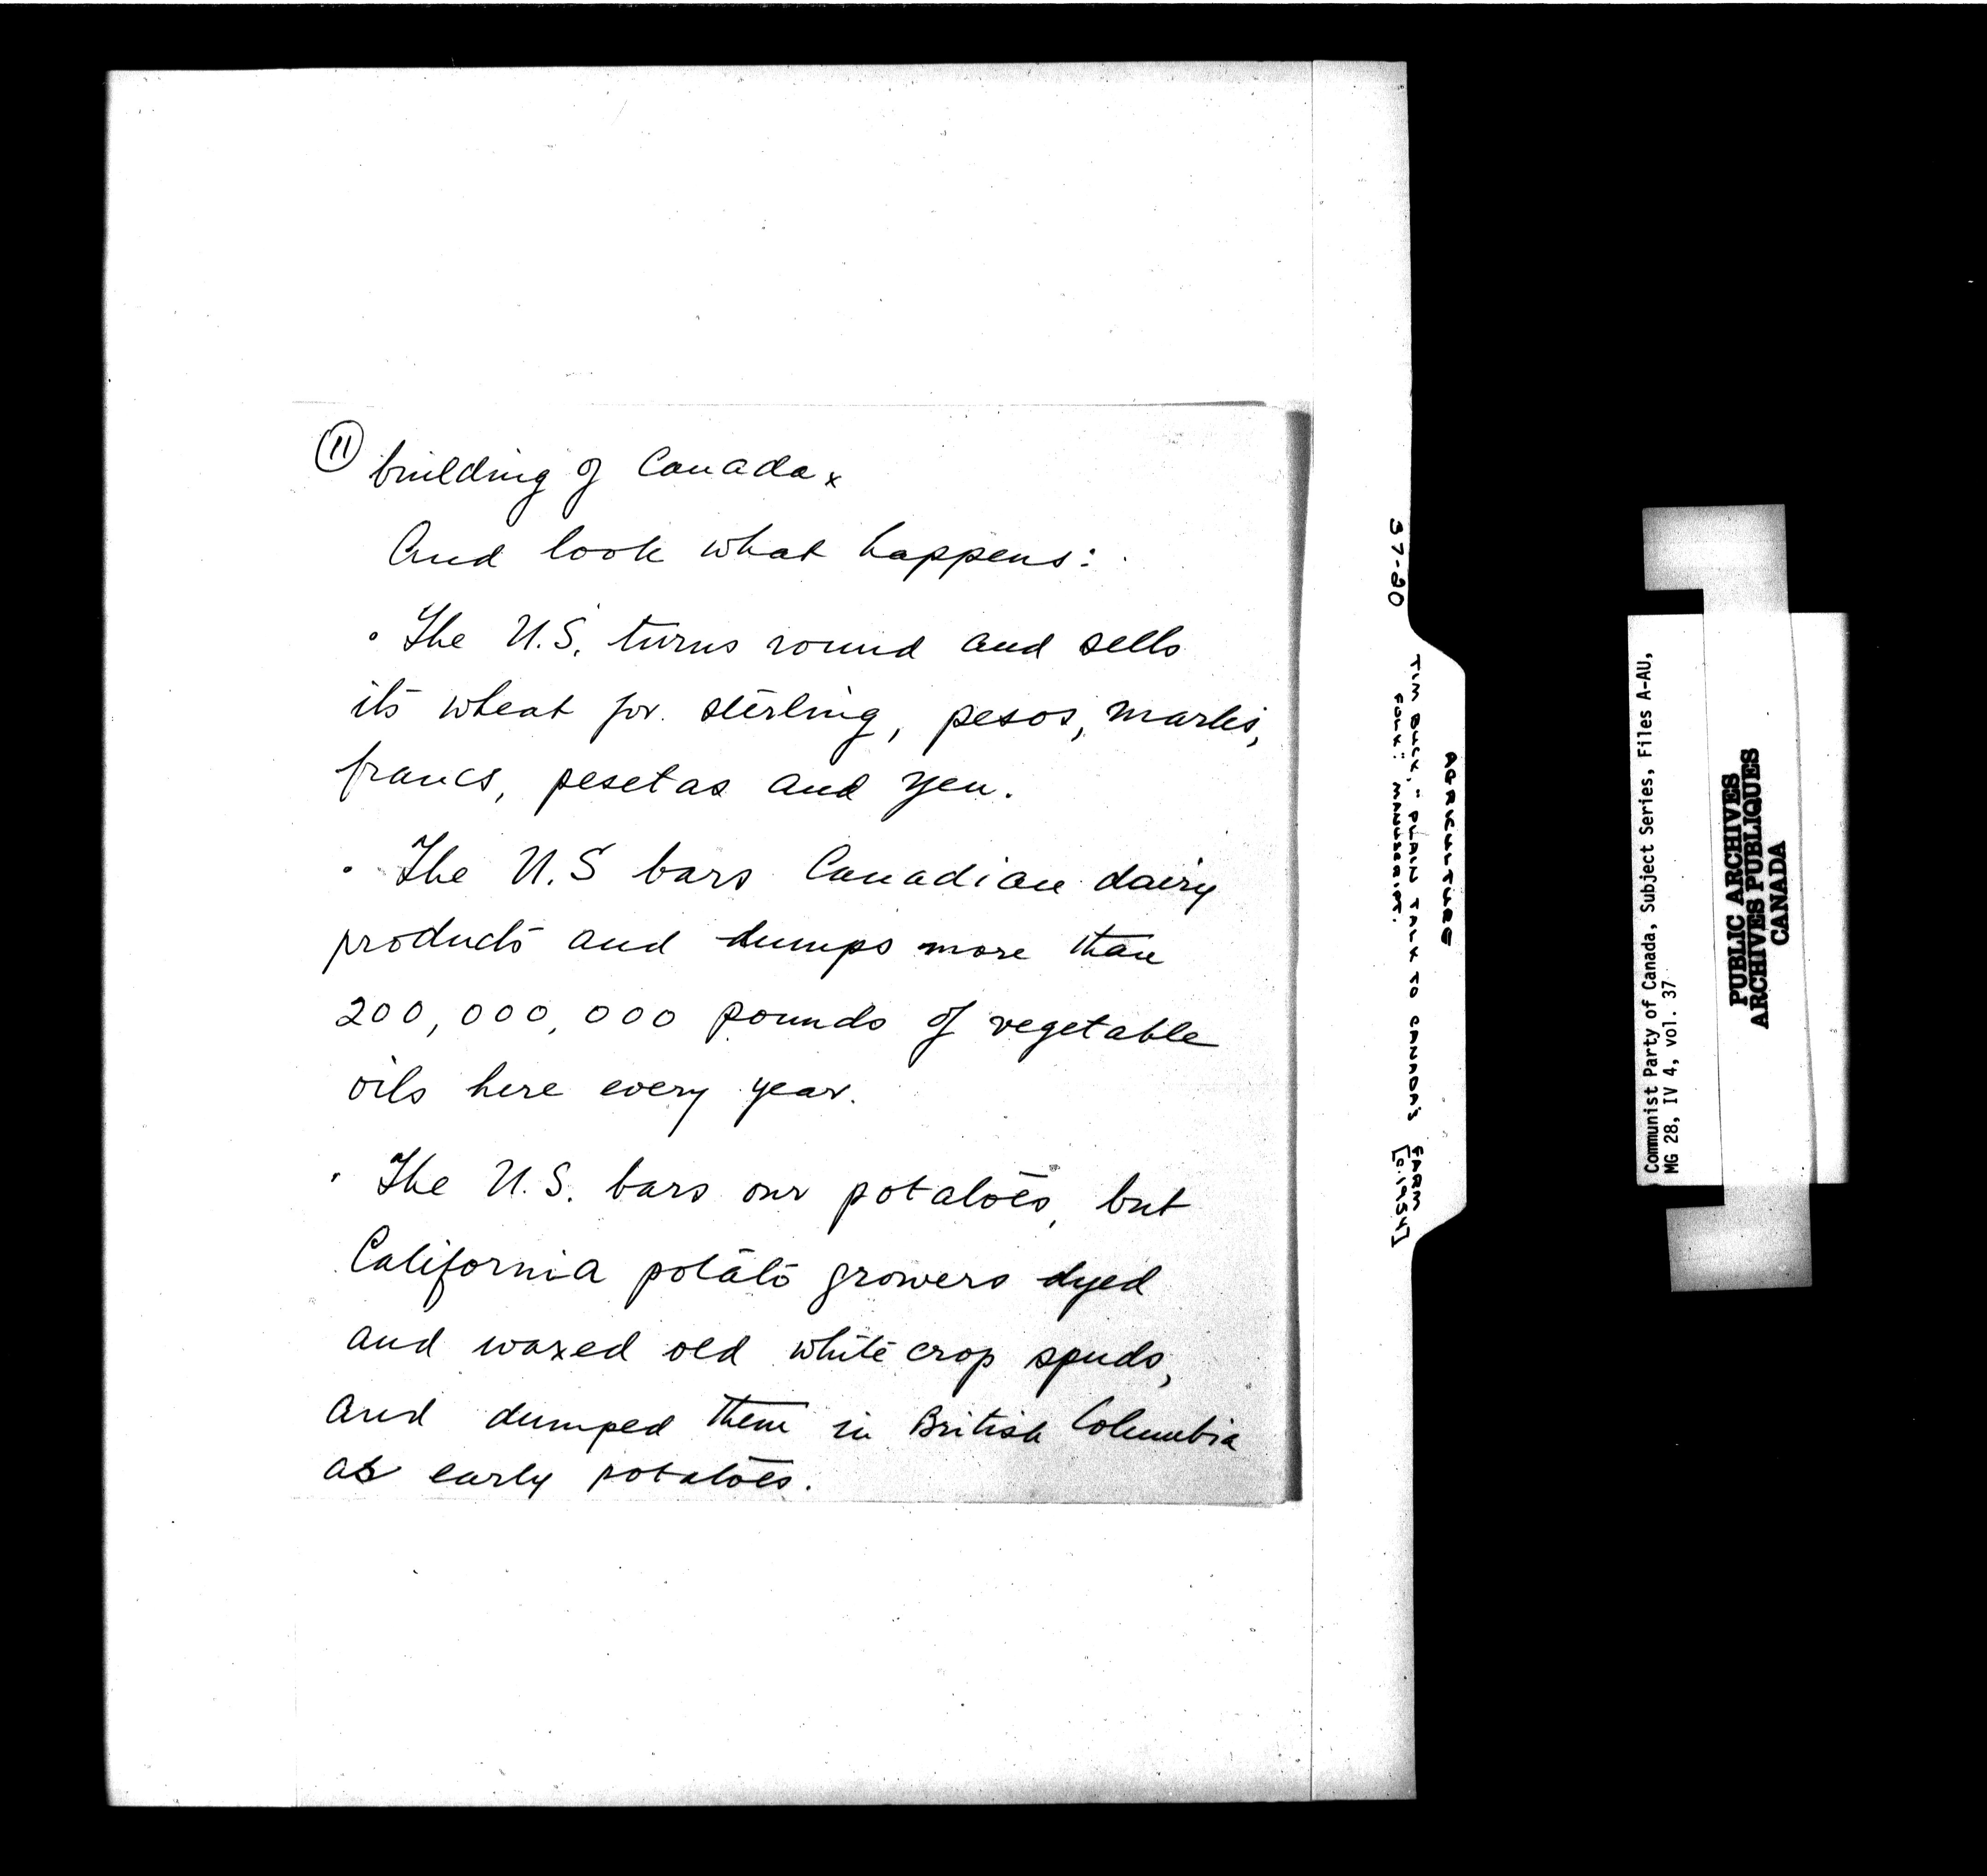 11 building of Canada x
And look what happens:
• The U.S. turns round and sells
its wheat for sterling, pesos, marks,
francs, pesetas and yen.
• The U.S bars Canadian dairy
products and dumps more than
200,000,000 pounds of vegetable
oils here every year.
• The U.S. bars our potatoes, but
California potato growers dyed
and waxed old white crop spuds,
and dumped them in British Columbia
as early potatoes.
37-20
AGRICULTURE
TIM BUCK, "PLAIN TALK TO CANADA'S FARM
FOLK": MANUSCRIPT. [c.1954]
Communist Party of Canada, Subject Series, Files A-AU,
MG 28, IV 4, vol. 37
PUBLIC ARCHIVES
ARCHIVES PUBLIQUES
CANADA